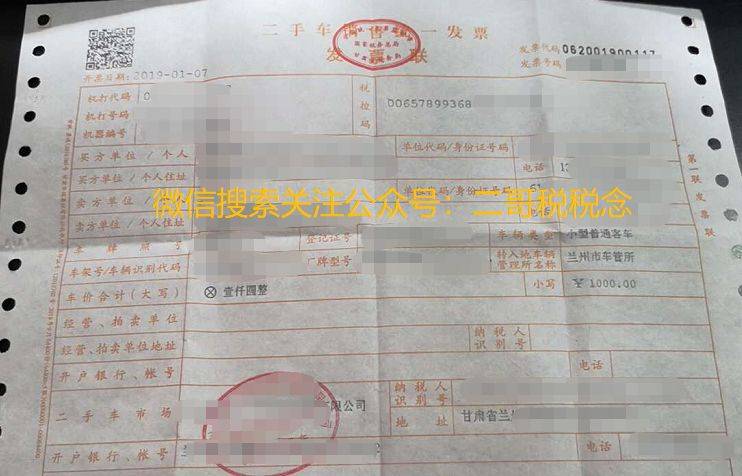 二手车销售统一发票
发票联
国家税务总局
发票代码 062001900117
发票号码
开票日期: 2019-01-07
机打代码 0
机打号码
机器编号
税控码
00657899368
买方单位/个人
单位代码/身份证号码
买方单位/个人住址
电话 13
卖方单位/个人
单位代码/身份证号码 61
卖方单位/个人住址
微信搜索关注公众号:二哥税税念
车牌照号
登记证号
车辆类型 小型普通客车
车架号/车辆识别代码
厂牌型号
转入地车辆管理所名称 兰州市车管所
车价合计(大写) ⊗ 壹仟圆整
小写 ¥ 1000.00
经营、拍卖单位
经营、拍卖单位地址
纳税人识别号
开户银行、帐号
电话
二手车市场
有限公司
纳税人识别号
地址 甘肃省兰
开户银行、帐号
电话
第一联 发票联